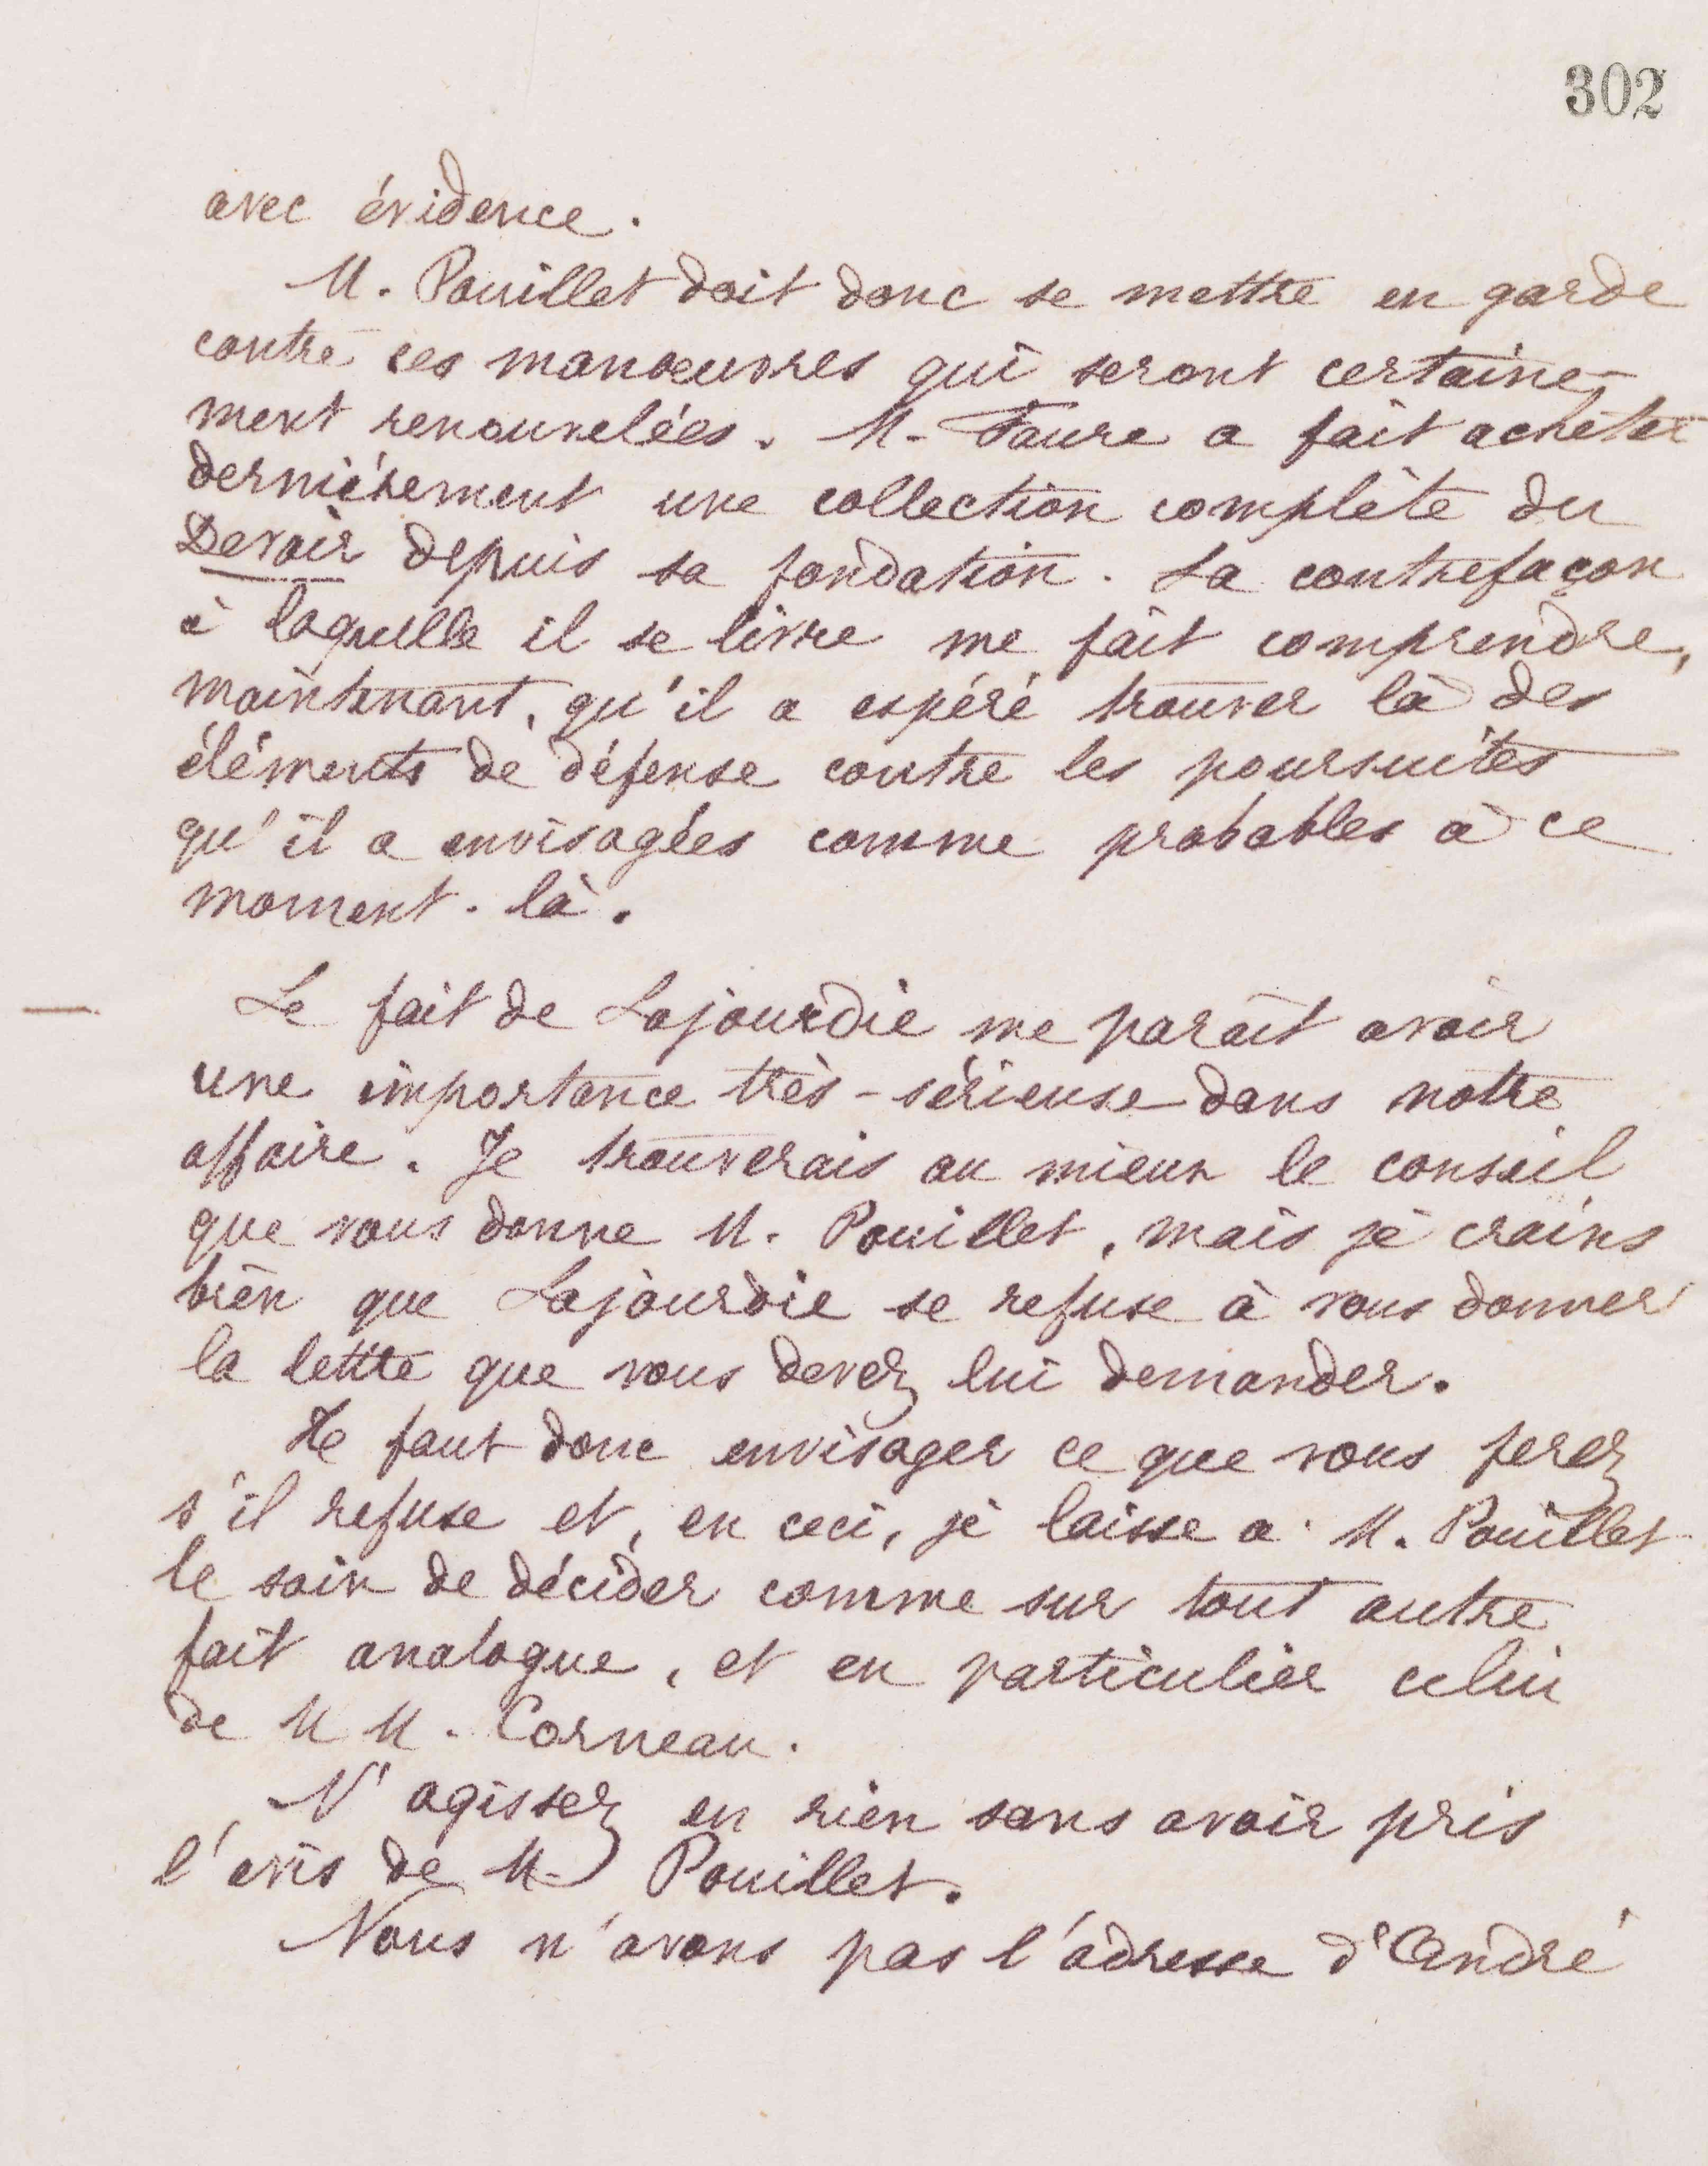 302
avec évidence.
M. Pouillet doit donc se mettre en garde
contre ces manœuvres qui seront certaine-
ment renouvelées. M. Faure a fait acheter
dernièrement une collection complète du
Devoir depuis sa fondation. La contrefaçon
à laquelle il se livre me fait comprendre,
maintenant, qu'il a espéré trouver là des
éléments de défense contre les poursuites
qu'il a envisagées comme probables à ce
moment-là.
Le fait de Lajourdie me paraît avoir
une importance très-sérieuse dans notre
affaire. Je trouverais au mieux le conseil
que vous donne M. Pouillet, mais je crains
bien que Lajourdie se refuse à vous donner
la lettre que vous devez lui demander.
Il faut donc envisager ce que vous ferez
s'il refuse et, en ceci, je laisse a M. Pouillet
le soin de décider comme sur tout autre
fait analogue, et en particulier celui
de MM. Corneau.
N'agissez en rien sans avoir pris
l'avis de M. Pouillet.
Nous n'avons pas l'adresse d'André